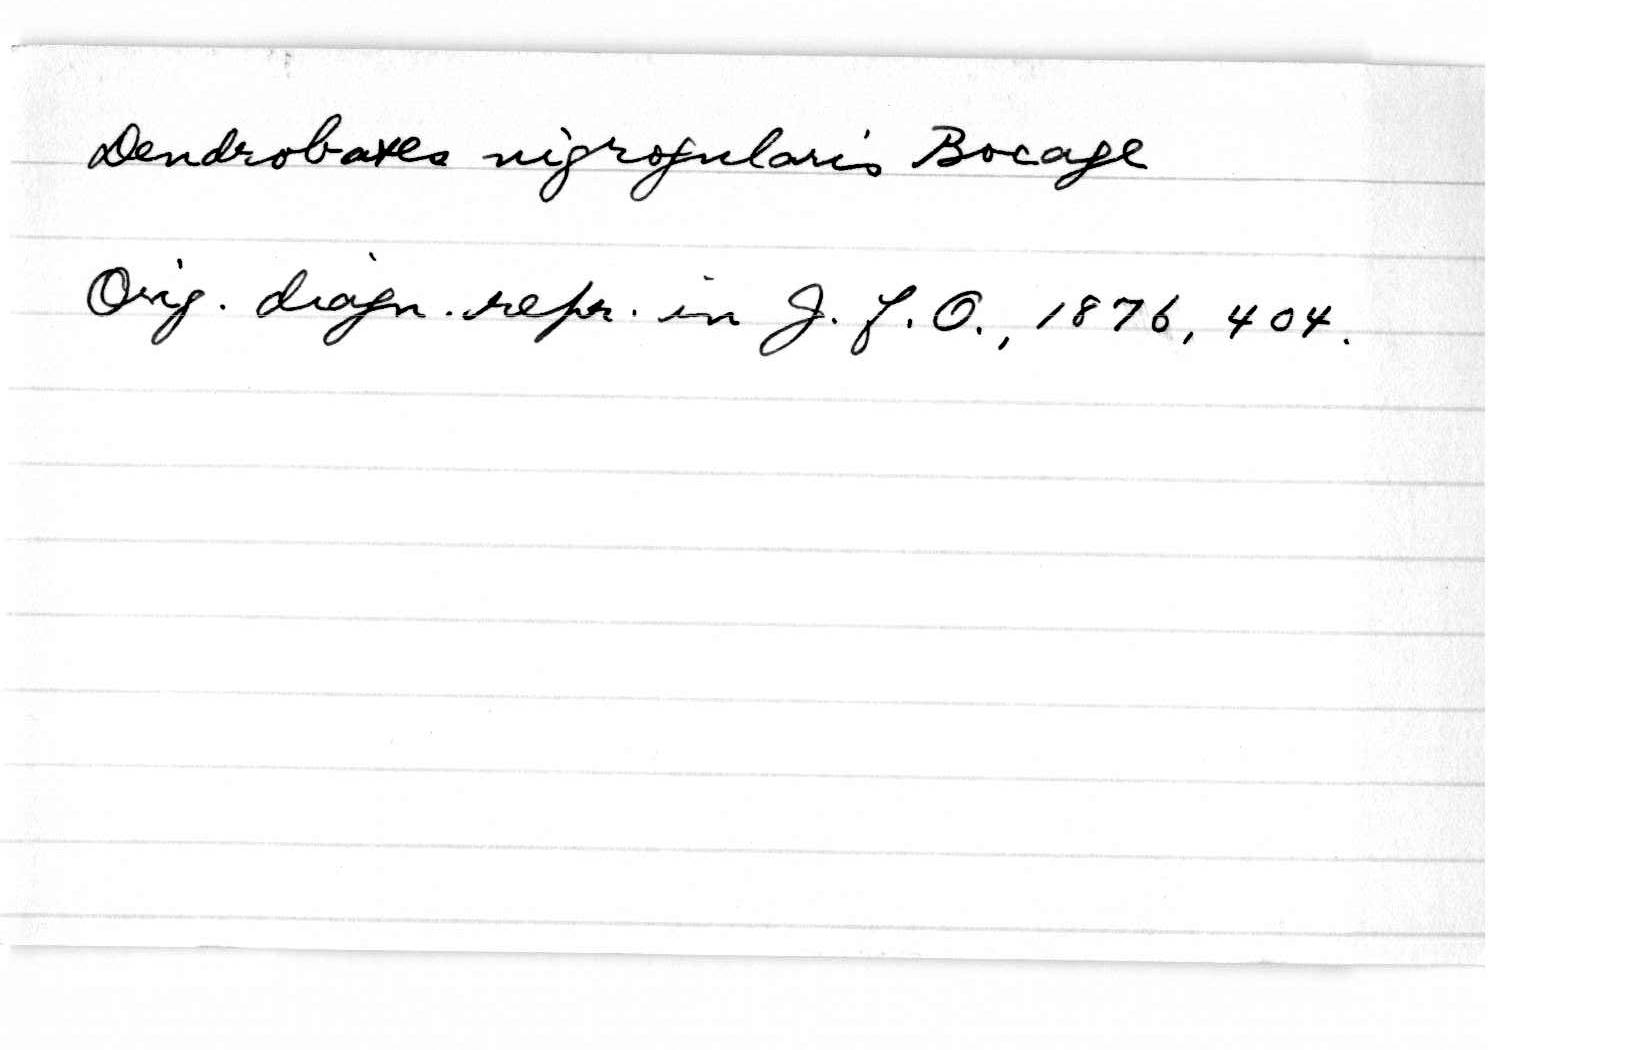 Dendrobates nigrogularis Bocage
Orig. diagn. repr. in J. f. O., 1876, 404.